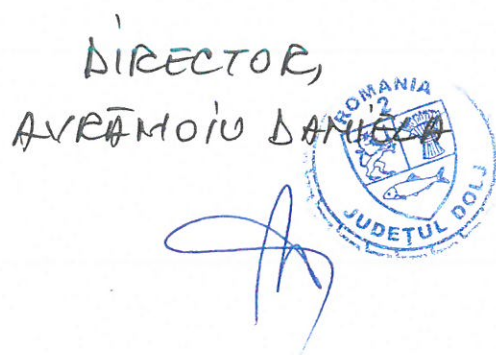 DIRECTOR,
AVRĂMOIU DANIELA
ROMANIA
2
JUDEȚUL DOLJ